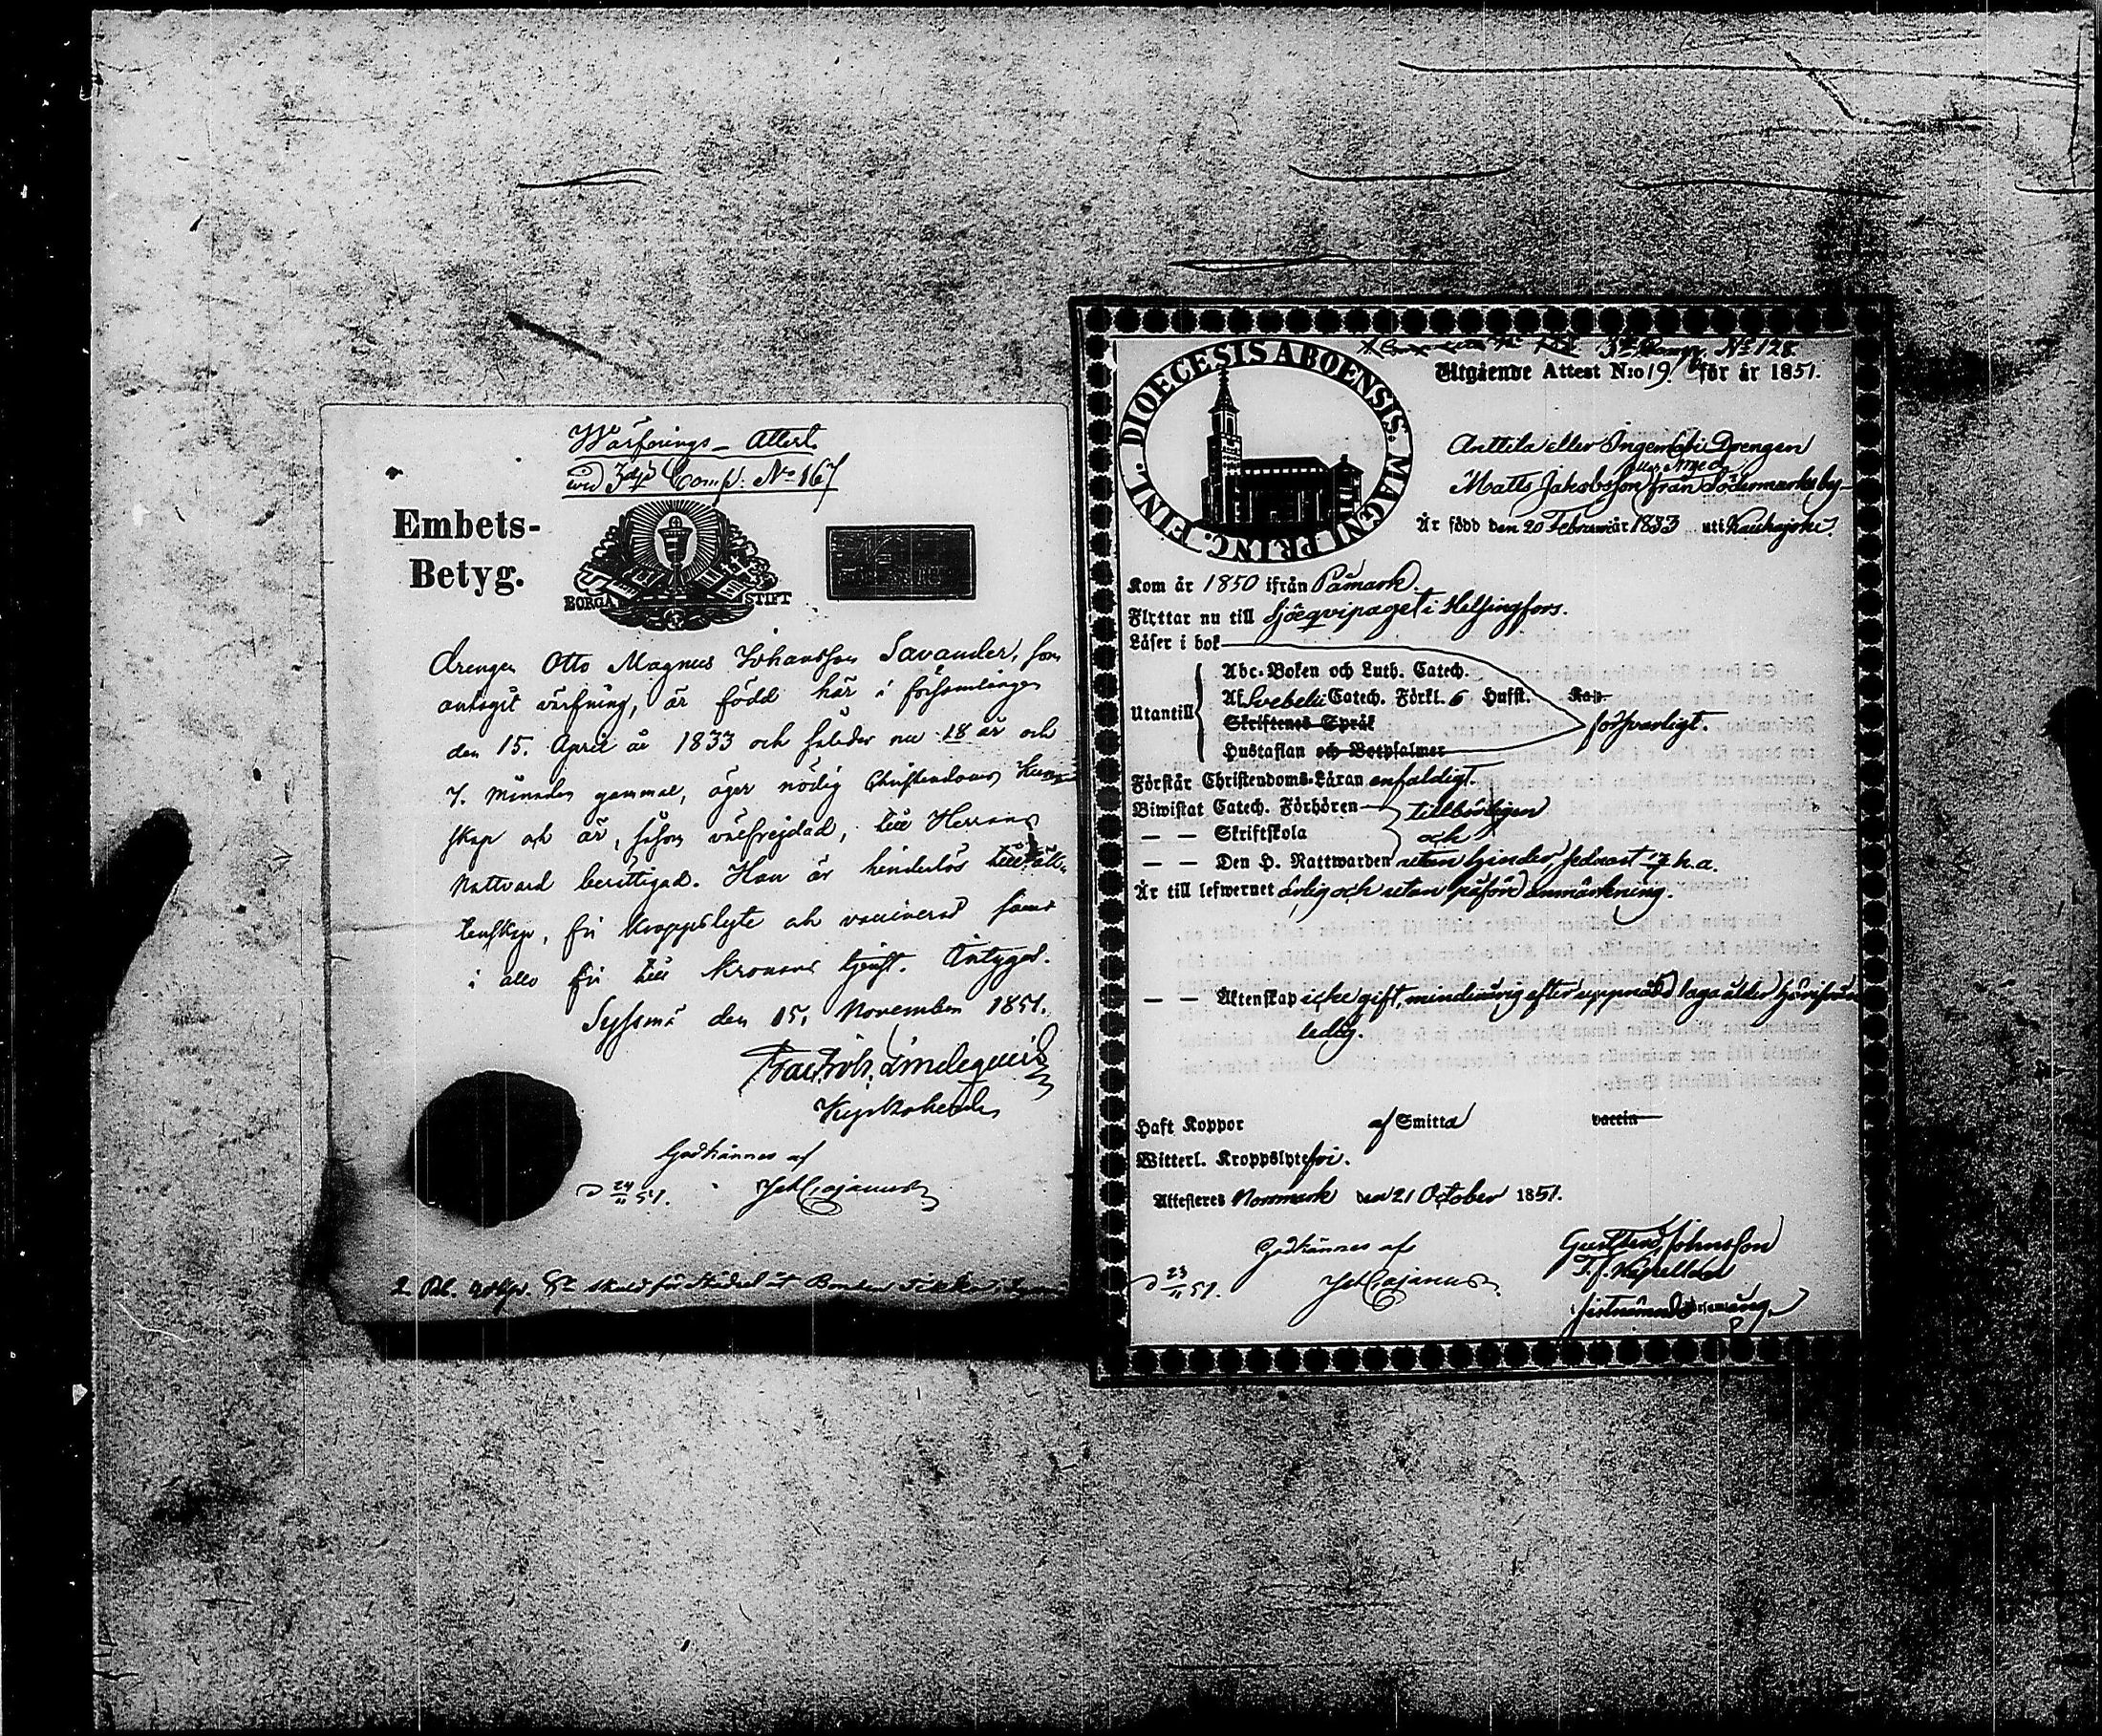 Wärfnings-Attest
wid 3dje Comp: No 167
Embets-
Betyg.
BORGÅ STIFT
Drengen Otto Magnus Johansson Savander, som
antagit värfning, är född här i församlingen
den 15. April år 1833 och således nu 18 år och
7. månader gammal, äger nödig Christendoms kun-
skap och är, såsom välfrejdad, till Herrans
Nattvard berättigad. Han är hinderlös till äk-
tenskap, fri kroppslyte och vaccinerad samt
i allo fri till Kronans tjenst. Intygas.
Syssmä den 15. November 1851.
Lindequist
Kyrkoherde
Godkännes af
d 24/11 51. Cajanus
2 Rbl. skuld för städsel åt Bonden
3dje Comp. No 128
DIOECESIS ABOENSIS. MAGNI PRINC. FINL.
Utgående Attest N:o 19 för år 1851.
Anttila eller Ingemari Drengen
Matts Jakobsson från Södermarks by
Är född den 20 Februari år 1833 uti Kauhajoki.
Kom år 1850 ifrån Påmark.
Flyttar nu till Sjöeqvipaget i Helsingfors.
Läser i bok
Utantill
Abc-Boken och Luth. Catech.
Af Svebelii Catech. Förkl. 6 Hufst. Kap.
Skriftenes Språk
försvarligt.
Hustaflan och Botpsalmer
Förstår Christendoms-Läran enfaldigt.
Biwistat Catech. Förhören tillbörligen
— — Skriftskola och
— — Den H. Nattwarden utan hinder, sednast h.a.
Är till lefwernet ärlig och utan påförd anmärkning.
— — Äktenskap icke gift, minderårig efter uppnådd laga ålder härifrån
ledig.
Haft Koppor af Smitta vaccin
Witterl. Kroppslyte fri.
Attesteras Norrmark den 21 October 1851.
Godkännes af
d 23/11 51. Cajanus
Johnsson
T.f. Kapellan